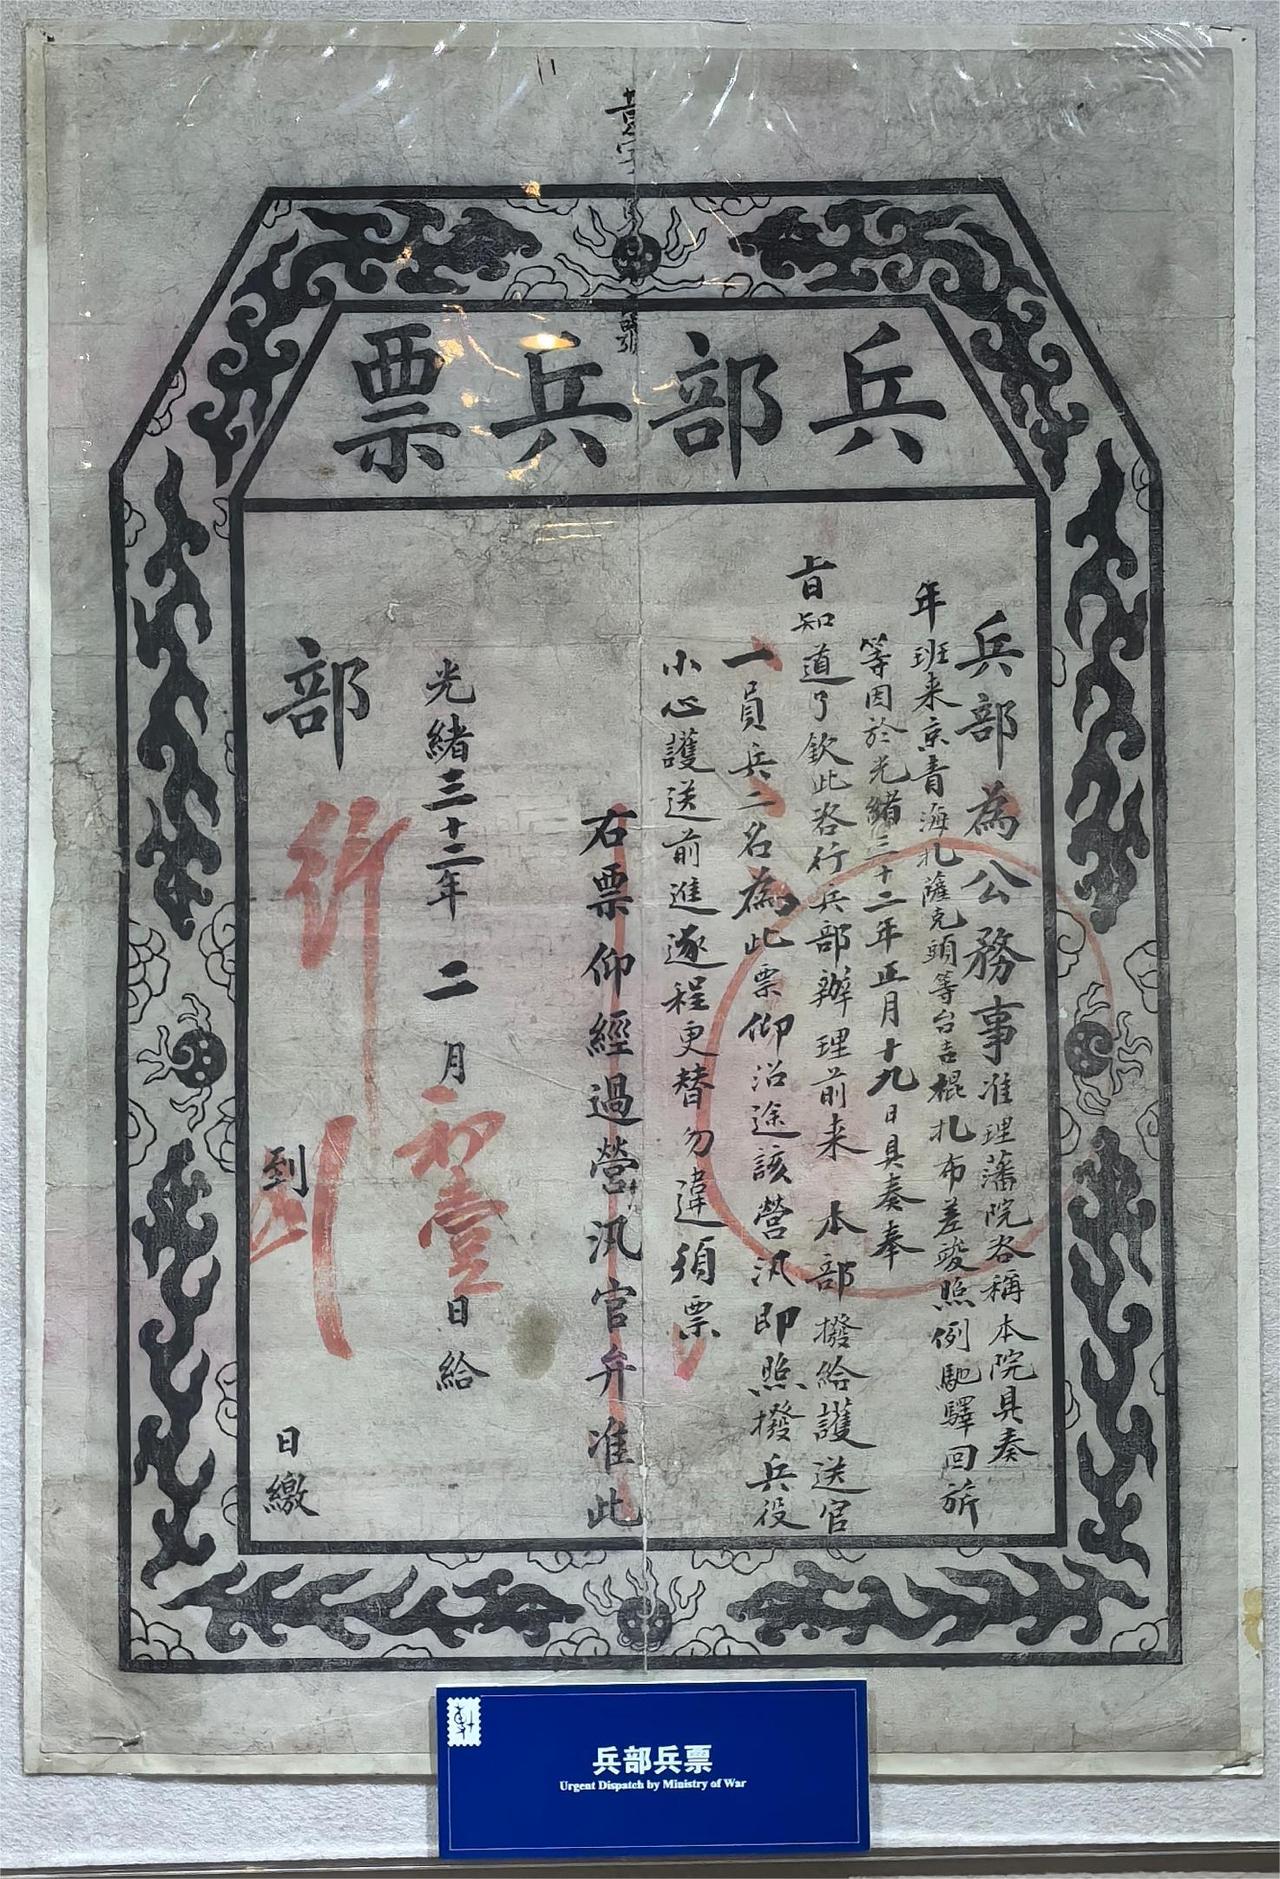 兵部兵票
兵部為公務事准理藩院咨稱本院具奏
年班来京青海扎薩克頭等台吉棍扎布差竣照例馳驛回旂
等因於光緒三十二年正月十九日具奏奉
旨知道了欽此咨行兵部辦理前来 本部撥給護送官
一員兵二名為此票仰沿途該營汛即照撥兵役
小心護送前進逐程更替勿違須票
右票仰經過營汛官弁准此
光緒三十二年 二 月 初壹 日給
部 行 到 日繳
兵部兵票
Urgent Dispatch by Ministry of War